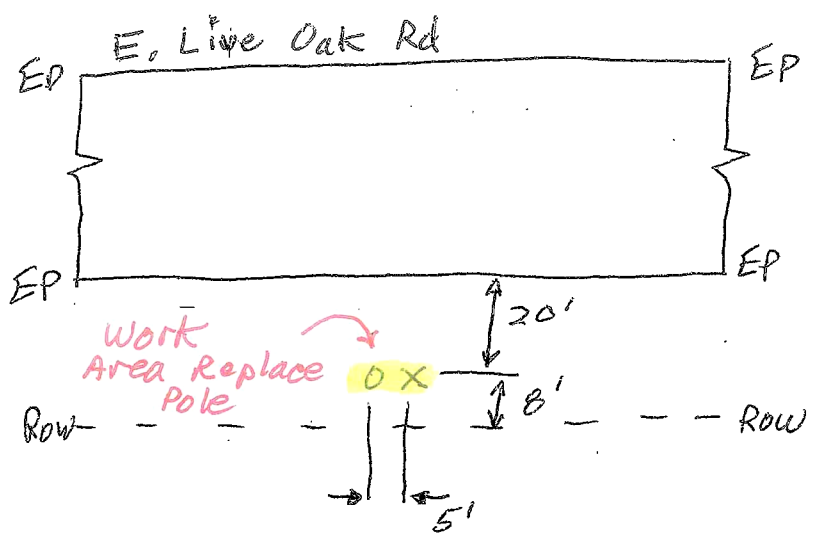 E. Live Oak Rd
EP
EP
EP
EP
20'
Work
Area Replace
Pole
O X
8'
ROW
ROW
5'